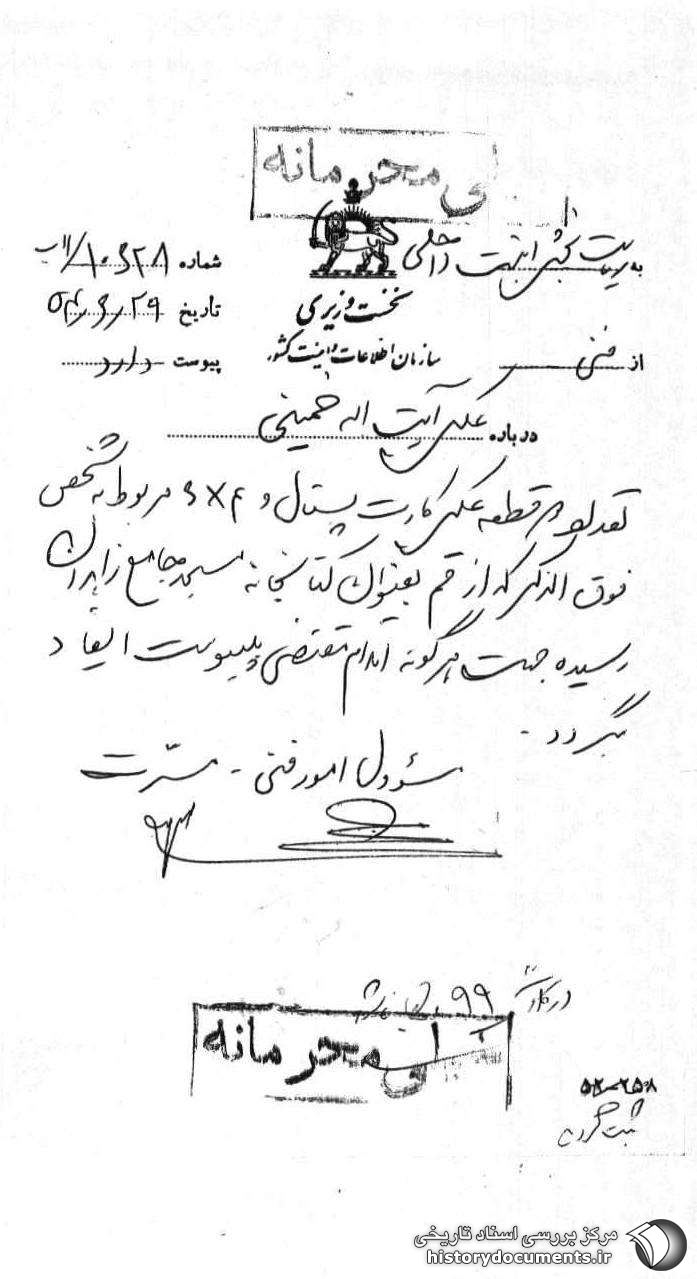 محرمانه
به ریاست بخش امنیت داخلی
شماره ۱۰۶۲۸/
نخست وزیری
تاریخ ۵۴ر۶ر۲۹
سازمان اطلاعات و امنیت کشور
از فنی
پیوست دارد
درباره عکس آیت اله خمینی
تعداد قطعه عکس کارت پستال و ۴×۶ مربوط به شخص
فوق الذکر که از قم بعنوان کتابخانه مسجد جامع زاهدان
رسیده جهت هرگونه اقدام مقتضی بپیوست ایفاد
میگردد.
مسئول امور فنی - مسرت
۹۹
محرمانه
ثبت گردید
مرکز بررسی اسناد تاریخی
historydocuments.ir